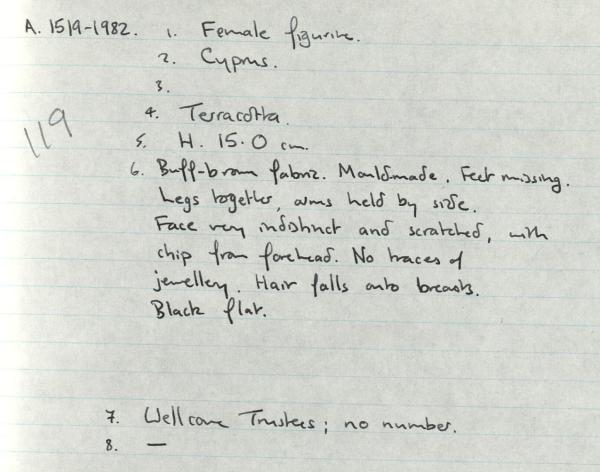 A. 1519-1982. 1. Female figurine.
2. Cyprus.
3.
119
4. Terracotta.
5. H. 15.0 cm.
6. Buff-brown fabric. Mouldmade. Feet missing.
Legs together, arms held by side.
Face very indistinct and scratched, with
chip from forehead. No traces of
jewellery. Hair falls onto breasts.
Black flat.
7. Wellcome Trustees; no number.
8. —